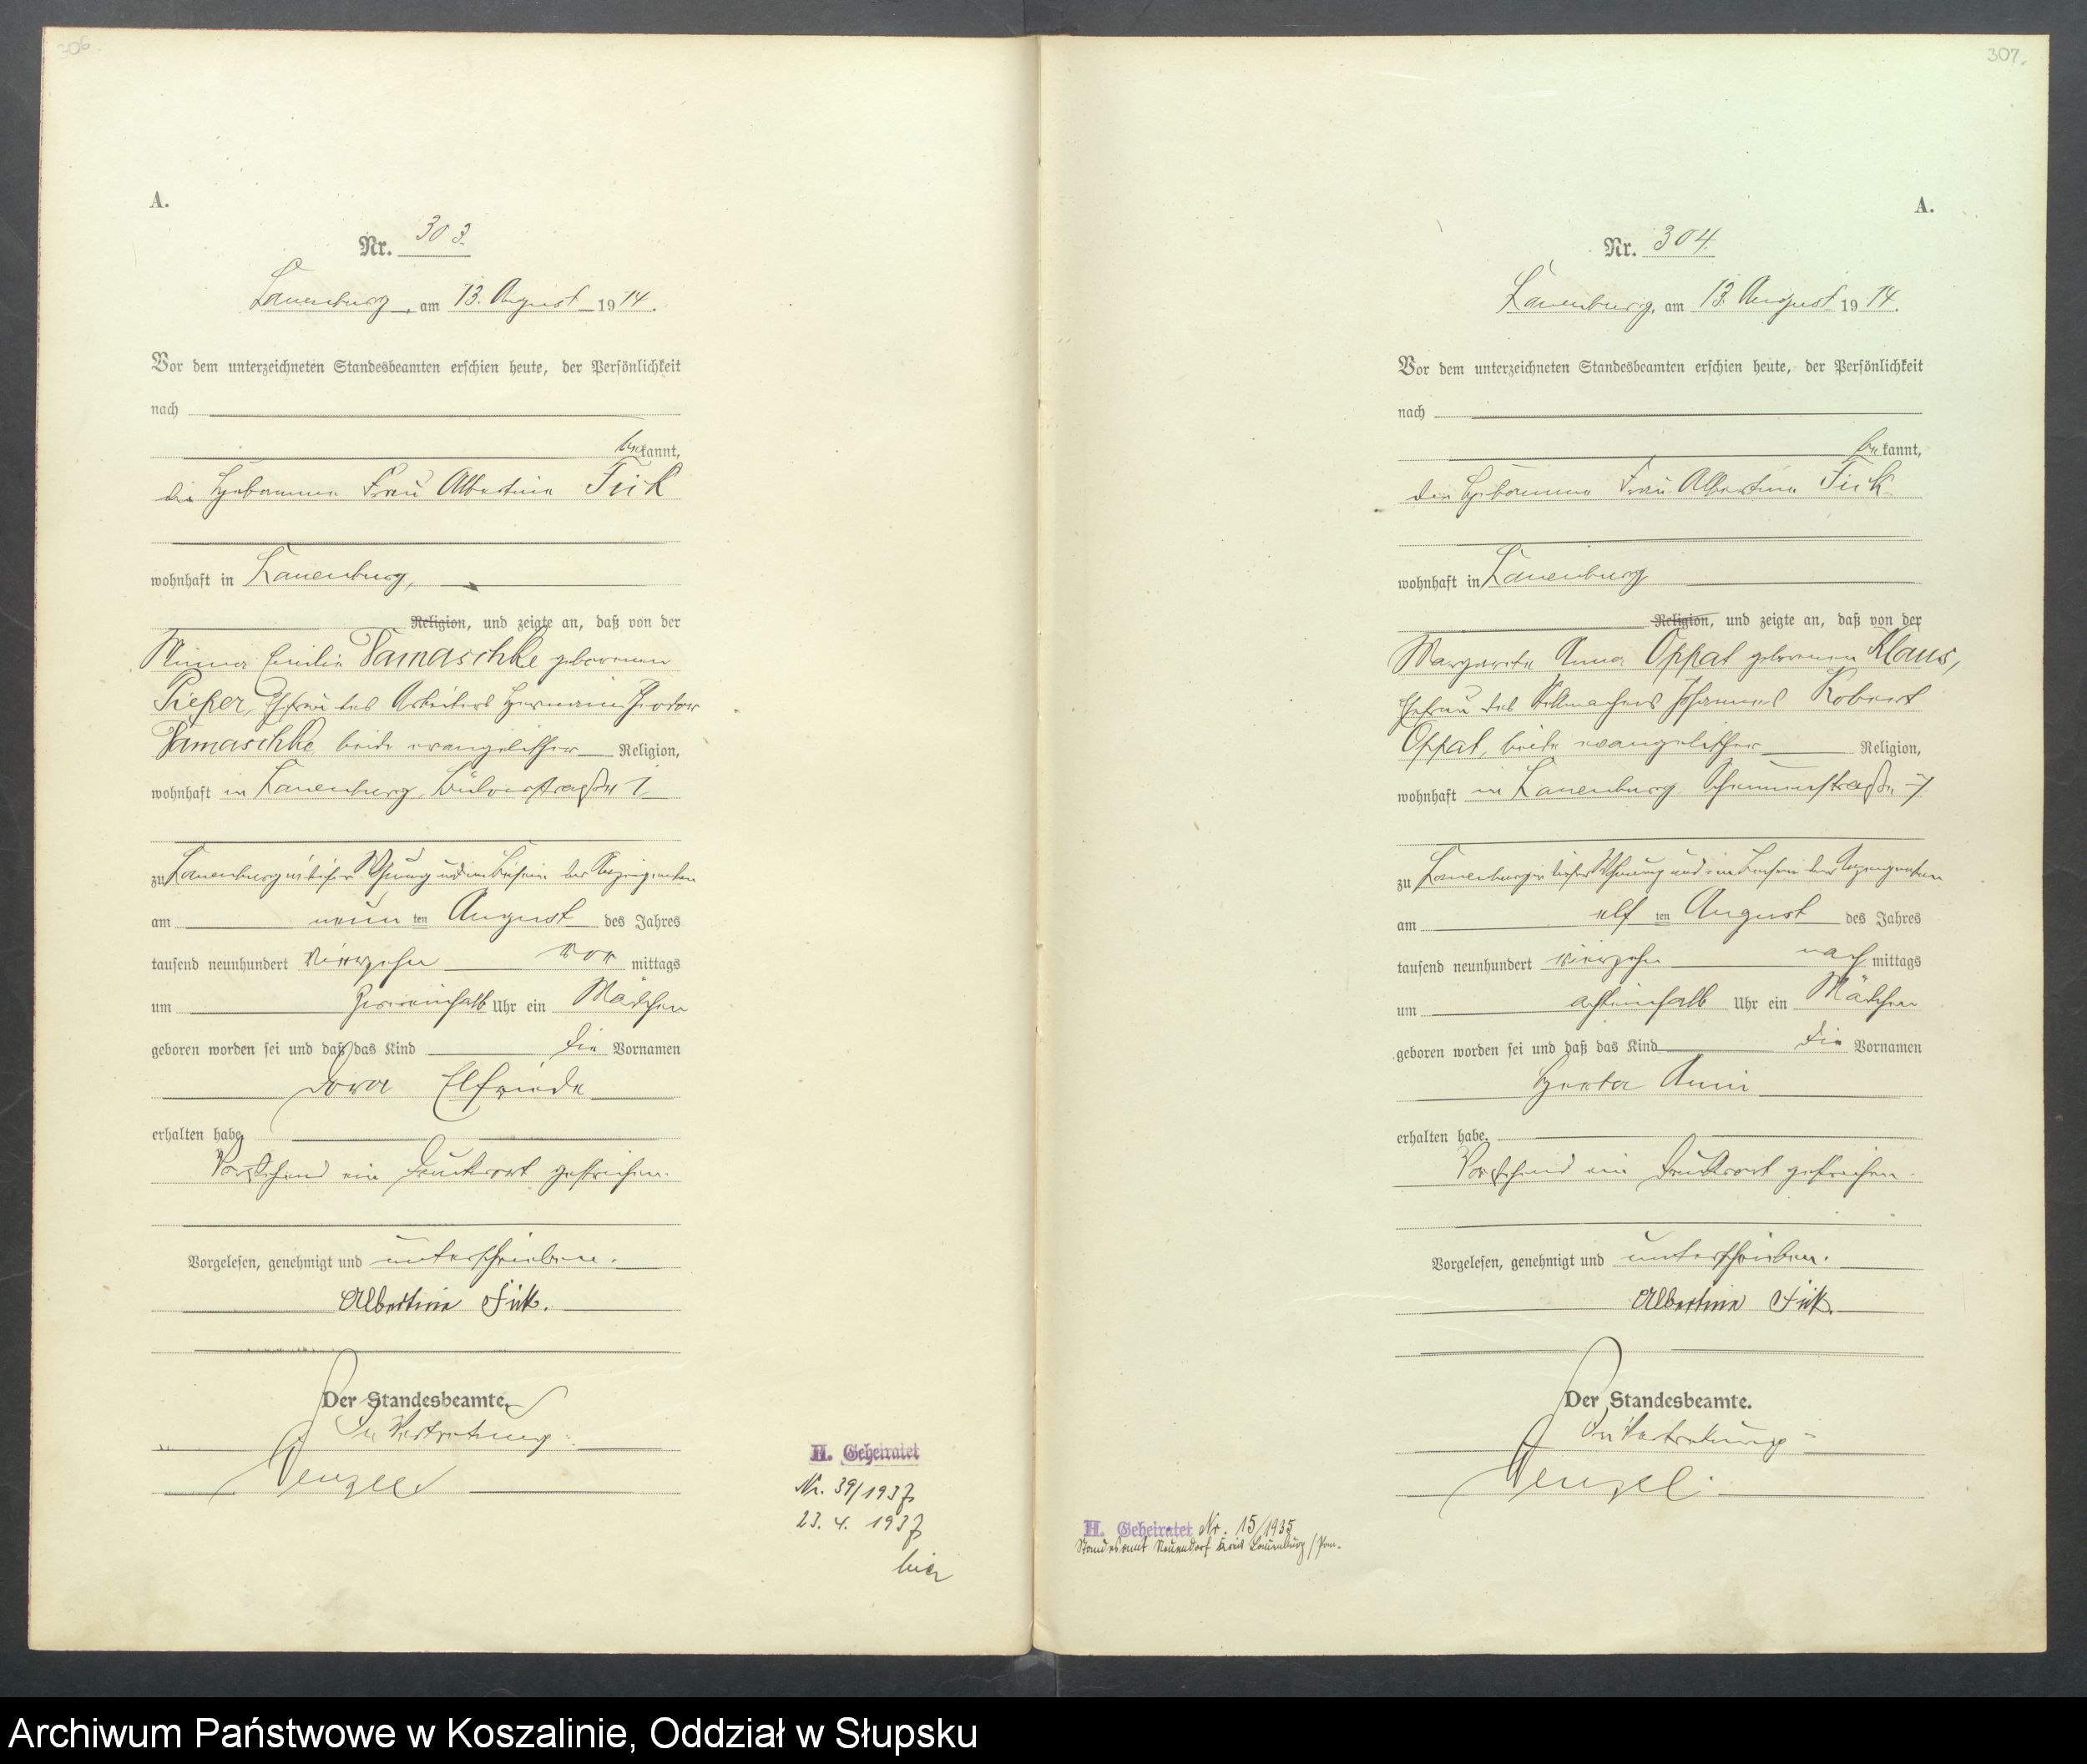 306.
A.
Nr. 303.
Lauenburg, am 13. August 1914.
Vor dem unterzeichneten Standesbeamten erschien heute, der Persönlichkeit
nach
bekannt,
die Hebamme Frau Albertine Fick
wohnhaft in Lauenburg,
Religion, und zeigte an, daß von der
Minna Emilie Pamaschke geborenen
Pieper, Ehefrau des Arbeiters Hermann Theodor
Pamaschke beide evangelischer Religion,
wohnhaft in Lauenburg, Bülowstraße 1
zu Lauenburg in dieser Wohnung und im Beisein der Anzeigenden
am neunten August des Jahres
tausend neunhundert vierzehn vormittags
um Uhr ein Mädchen
geboren worden sei und daß das Kind die Vornamen
Dora Elfriede
erhalten habe.
Vorstehend ein Druckwort gestrichen.
Vorgelesen, genehmigt und unterschrieben.
Albertine Fick.
Der Standesbeamte.
In Vertretung:
Wenzel
H. Geheiratet
Nr. 39/1937
23. 4. 1937
hier
307.
A.
Nr. 304.
Lauenburg, am 13. August 1914.
Vor dem unterzeichneten Standesbeamten erschien heute, der Persönlichkeit
nach
bekannt,
die Hebamme Frau Albertine Fick
wohnhaft in Lauenburg
Religion, und zeigte an, daß von der
Margarete Anna Oppat geborenen Klaus,
Ehefrau des Stellmachers Johannes Robert
Oppat, beide evangelischer Religion,
wohnhaft in Lauenburg Scheunenstraße 7
zu Lauenburg in dieser Wohnung und im Beisein der Anzeigenden
am elften August des Jahres
tausend neunhundert vierzehn nachmittags
um achteinhalb Uhr ein Mädchen
geboren worden sei und daß das Kind die Vornamen
Herta Anni
erhalten habe.
Vorstehend ein Druckwort gestrichen.
Vorgelesen, genehmigt und unterschrieben.
Albertine Fick.
Der Standesbeamte.
In Vertretung:
Wenzel.
H. Geheiratet Nr. 15/1935
Standesamt Neuendorf Kreis Lauenburg / Pom.
Archiwum Państwowe w Koszalinie, Oddział w Słupsku